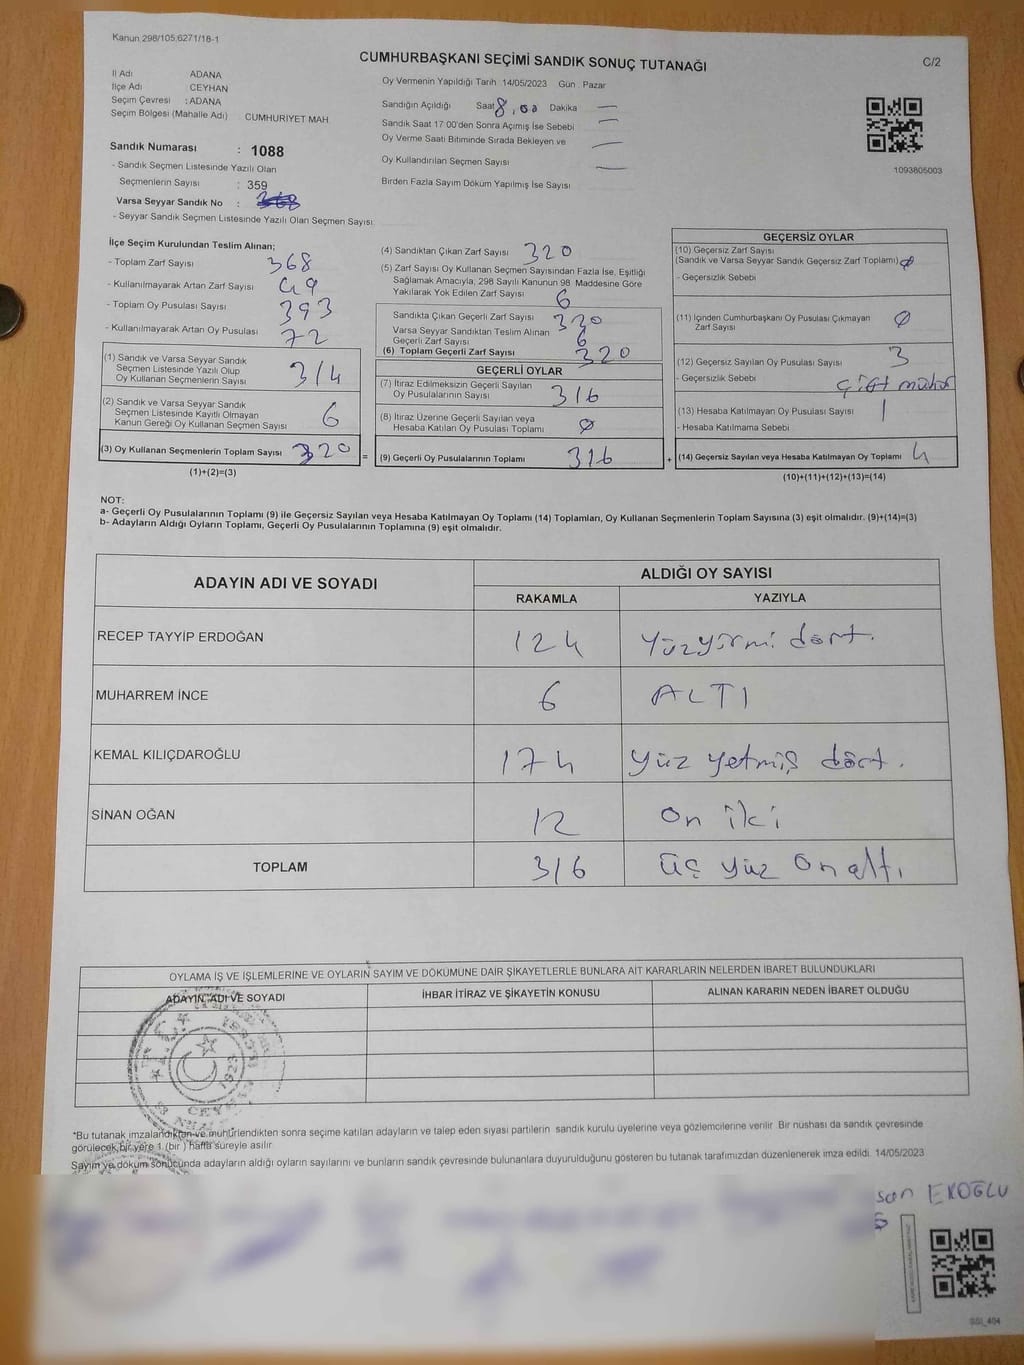 Kanun 298/105,6271/18-1
CUMHURBAŞKANI SEÇİMİ SANDIK SONUÇ TUTANAĞI
C/2
İl Adı ADANA
İlçe Adı CEYHAN
Seçim Çevresi : ADANA
Seçim Bölgesi (Mahalle Adı) CUMHURİYET MAH.
Oy Vermenin Yapıldığı Tarih 14/05/2023 Gün Pazar
Sandığın Açıldığı Saat 8,00 Dakika —
Sandık Saat 17 00'den Sonra Açımış İse Sebebi —
Oy Verme Saati Bitiminde Sırada Bekleyen ve
Oy Kullandırılan Seçmen Sayısı —
Birden Fazla Sayım Döküm Yapılmış İse Sayısı —
1093805003
Sandık Numarası : 1088
- Sandık Seçmen Listesinde Yazılı Olan
Seçmenlerin Sayısı : 359
Varsa Seyyar Sandık No :
- Seyyar Sandık Seçmen Listesinde Yazılı Olan Seçmen Sayısı:
İlçe Seçim Kurulundan Teslim Alınan;
- Toplam Zarf Sayısı 368
- Kullanılmayarak Artan Zarf Sayısı 49
- Toplam Oy Pusulası Sayısı 393
- Kullanılmayarak Artan Oy Pusulası 72
(1) Sandık ve Varsa Seyyar Sandık
Seçmen Listesinde Yazılı Olup
Oy Kullanan Seçmenlerin Sayısı 314
(2) Sandık ve Varsa Seyyar Sandık
Seçmen Listesinde Kayıtlı Olmayan
Kanun Gereği Oy Kullanan Seçmen Sayısı 6
(3) Oy Kullanan Seçmenlerin Toplam Sayısı 320
(1)+(2)=(3)
=
(4) Sandıktan Çıkan Zarf Sayısı 320
(5) Zarf Sayısı Oy Kullanan Seçmen Sayısından Fazla İse, Eşitliği
Sağlamak Amacıyla, 298 Sayılı Kanunun 98 Maddesine Göre
Yakılarak Yok Edilen Zarf Sayısı 6
Sandıkta Çıkan Geçerli Zarf Sayısı 320
Varsa Seyyar Sandıktan Teslim Alınan
Geçerli Zarf Sayısı 6
(6) Toplam Geçerli Zarf Sayısı 320
GEÇERLİ OYLAR
(7) İtiraz Edilmeksizin Geçerli Sayılan
Oy Pusulalarının Sayısı 316
(8) İtiraz Üzerine Geçerli Sayılan veya
Hesaba Katılan Oy Pusulası Toplamı Ø
(9) Geçerli Oy Pusulalarının Toplamı 316
+
GEÇERSİZ OYLAR
(10) Geçersiz Zarf Sayısı
(Sandık ve Varsa Seyyar Sandık Geçersiz Zarf Toplamı) Ø
- Geçersizlik Sebebi
(11) İçinden Cumhurbaşkanı Oy Pusulası Çıkmayan
Zarf Sayısı Ø
(12) Geçersiz Sayılan Oy Pusulası Sayısı 3
- Geçersizlik Sebebi çift mühür
(13) Hesaba Katılmayan Oy Pusulası Sayısı 1
- Hesaba Katılmama Sebebi
(14) Geçersiz Sayılan veya Hesaba Katılmayan Oy Toplamı 4
(10)+(11)+(12)+(13)=(14)
NOT:
a- Geçerli Oy Pusulalarının Toplamı (9) ile Geçersiz Sayılan veya Hesaba Katılmayan Oy Toplamı (14) Toplamları, Oy Kullanan Seçmenlerin Toplam Sayısına (3) eşit olmalıdır. (9)+(14)=(3)
b- Adayların Aldığı Oyların Toplamı, Geçerli Oy Pusulalarının Toplamına (9) eşit olmalıdır.
ADAYIN ADI VE SOYADI
ALDIĞI OY SAYISI
RAKAMLA YAZIYLA
RECEP TAYYİP ERDOĞAN 124 Yüzyirmi dört.
MUHARREM İNCE 6 ALTI
KEMAL KILIÇDAROĞLU 174 yüz yetmiş dört.
SİNAN OĞAN 12 on iki
TOPLAM 316 üç yüz on altı
OYLAMA İŞ VE İŞLEMLERİNE VE OYLARIN SAYIM VE DÖKÜMÜNE DAİR ŞİKAYETLERLE BUNLARA AİT KARARLARIN NELERDEN İBARET BULUNDUKLARI
ADAYIN ADI VE SOYADI İHBAR İTİRAZ VE ŞİKAYETİN KONUSU ALINAN KARARIN NEDEN İBARET OLDUĞU
T.C.
1923
CEYHAN
*Bu tutanak imzalandıktan ve mühürlendikten sonra seçime katılan adayların ve talep eden siyasi partilerin sandık kurulu üyelerine veya gözlemcilerine verilir Bir nüshası da sandık çevresinde
görülecek bir yere 1 (bir ) hafta süreyle asılır
Sayım ve döküm sonucunda adayların aldığı oyların sayılarını ve bunların sandık çevresinde bulunanlara duyurulduğunu gösteren bu tutanak tarafımızdan düzenlenerek imza edildi. 14/05/2023
san EKOĞLU